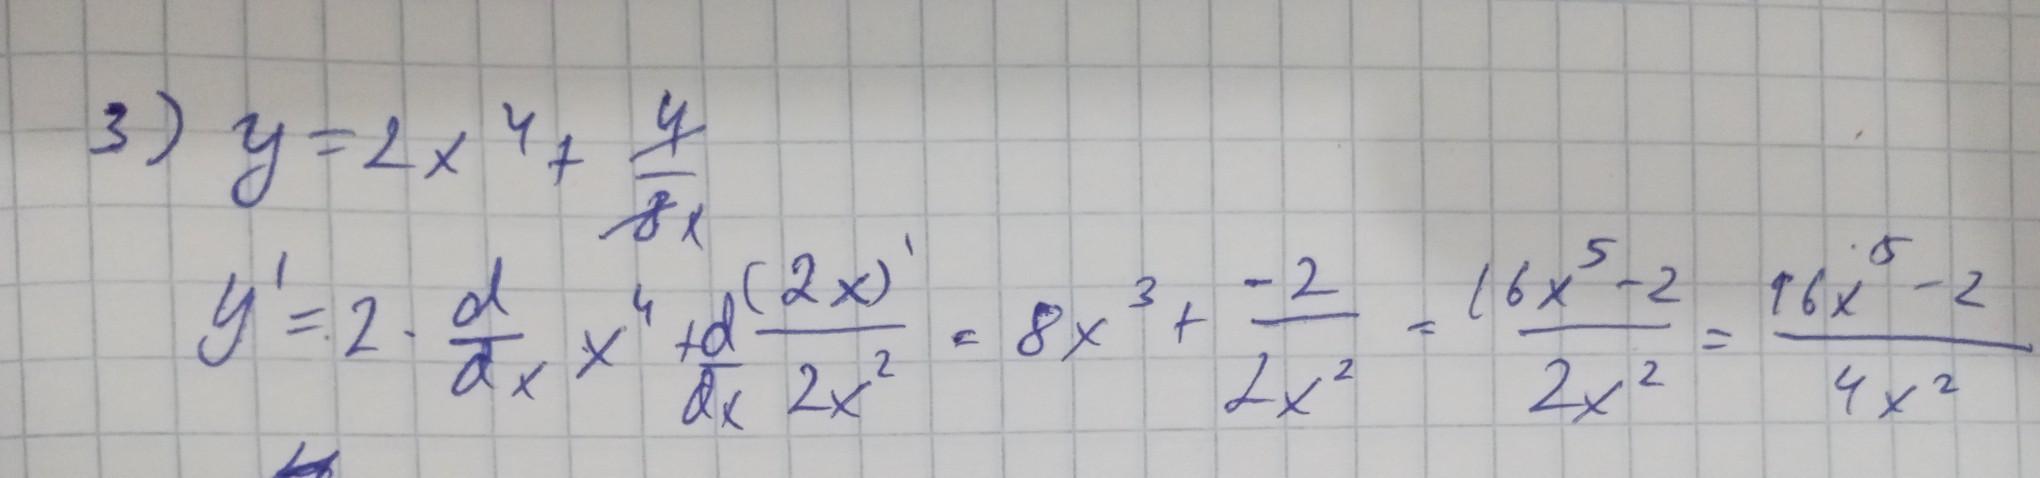 3) y = 2x⁴ + 4/8x
y' = 2 · d/dx x⁴ + d/dx (2x)'/2x² = 8x³ + -2/2x² = 16x⁵-2/2x² = 16x⁵-2/4x²